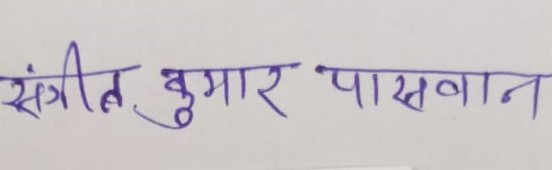 संगीत कुमार पासवान